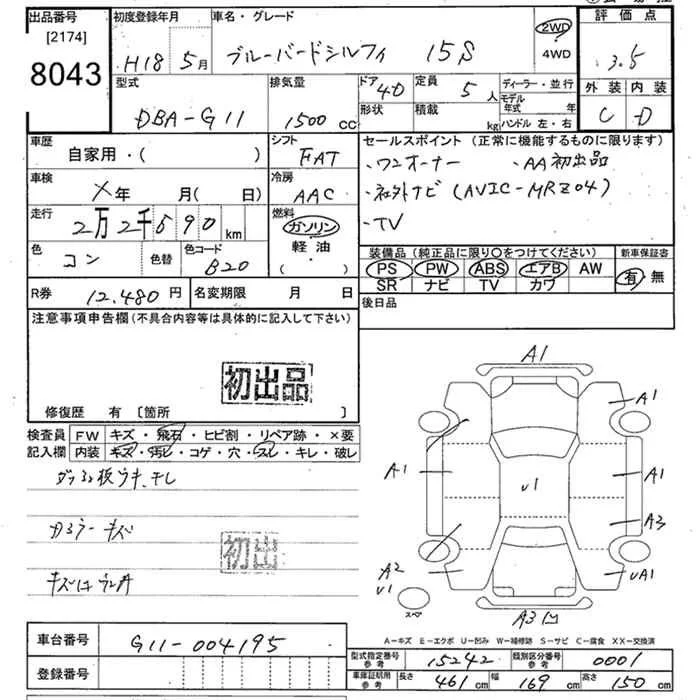 出品番号
[2174]
8043
初度登録年月
H18 5月
車名・グレード
ブルーバードシルフィ 15S
2WD
4WD
評価点
3.5
外装 内装
C D
型式
DBA-G11
排気量
1500cc
ドア 4D
形状
定員 5人
積載 kg
ディーラー・並行
モデル年式 年
ハンドル 左・右
車歴
自家用・( )
シフト
FAT
車検
X年 月( 日)
冷房
AAC
走行
2万2千590km
燃料
ガソリン
軽油
・( )
色
コン
色替
色コード
B20
セールスポイント(正常に機能するものに限ります)
・ワンオーナー ・AA初出品
・社外ナビ(AVIC-MRZ04)
・TV
装備品(純正品に限り〇をつけてください)
PS PW ABS エアB AW
SR ナビ TV カワ
新車保証書
有 無
R券 12,480円
名変期限 月 日
後日品
注意事項申告欄(不具合内容等は具体的に記入して下さい)
初出品
修復歴 有 [箇所 ]
検査員
記入欄
FW キズ・飛石・ヒビ割・リペア跡・×要
内装 キズ・汚レ・コゲ・穴・スレ・キレ・破レ
キズ
初出
A1
A1
A1
A1
v1
A3
A2
v1
vA1
スペア
A3
A-キズ E-エクボ U-凹み W-補修跡 S-サビ C-腐食 XX-交換済
車台番号 G11-004195
登録番号
型式指定番号 参考 15242
類別区分番号 参考 0001
車庫証明用 参考 長さ 461cm 幅 169cm 高さ 150cm